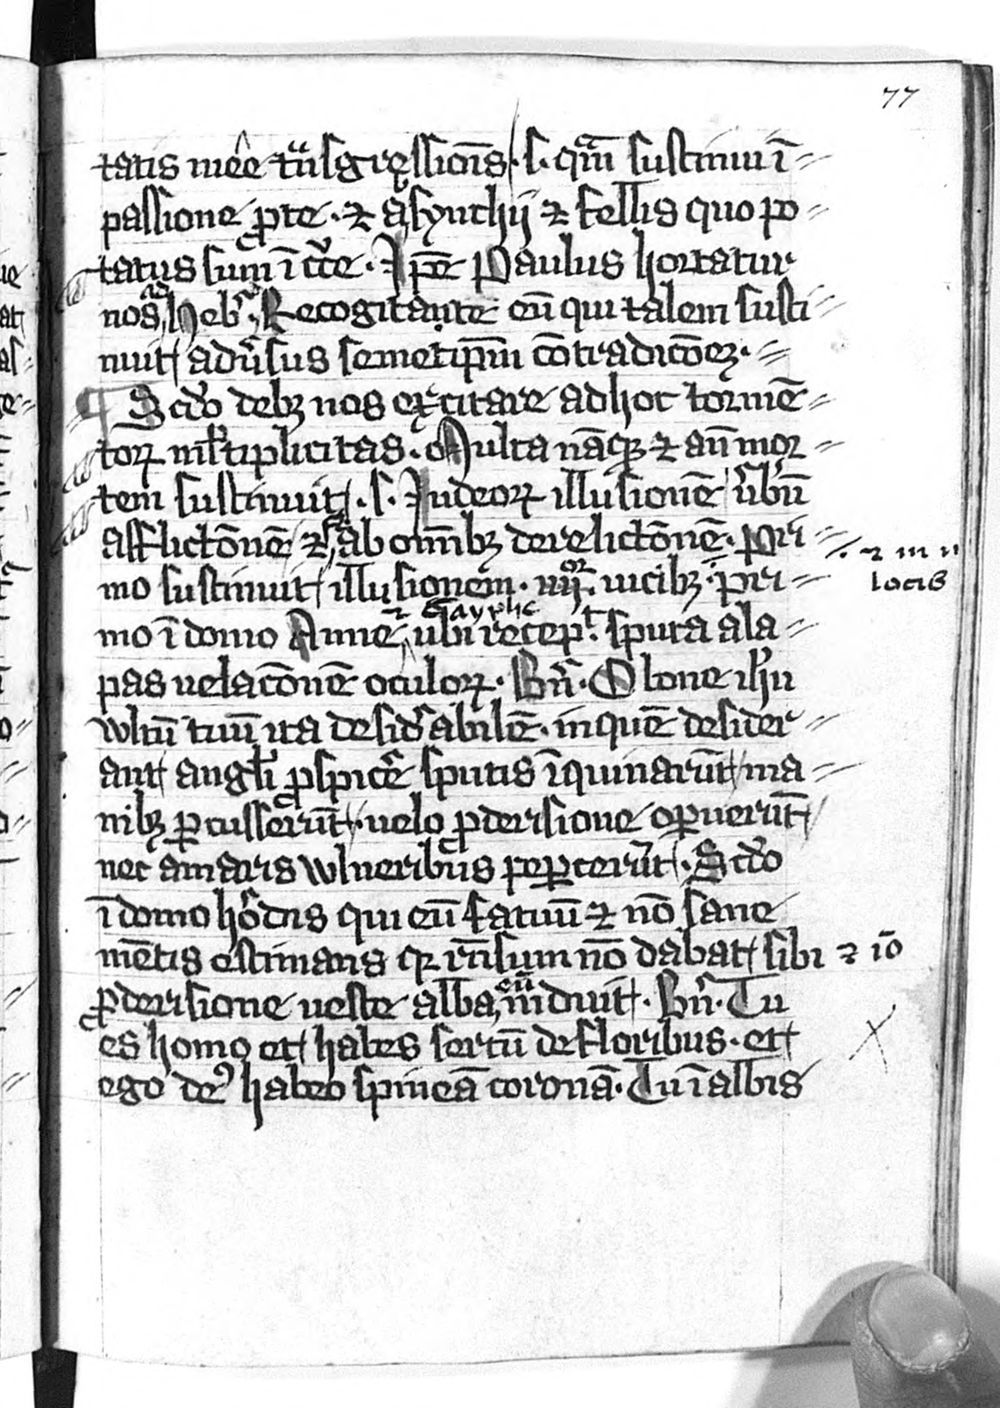 77
tatis mee t̄nsgressiōis · s · quā sustinui ī
passione ꝓ te · ⁊ absynthij ⁊ fellis quo po
tatus sum ī c̄ce · Iō Paulus hortatur
nos ad hebr̄ · Recogitate eū qui talem susti
nuit adūsus semetip̄m cōtradicōeꝫ ·
¶ Scđo debꝫ nos exc̄itare ad hoc tormē
toꝝ ml̄tiplicitas · Multa nāqꝫ ⁊ an̄ moꝛ
tem sustinuit · s · Iudeoꝝ illusionē v̄bū
afflictōnē ⁊ ab om̄ibꝫ derelictōnē · Pri
mo sustinuit illusionem · iiijor · uicibꝫ · pri
⁊ in ii
locis
⁊ Cayphe
mo ī domo Anne ubi recep̄t sputa ala
pas uelacōnē oculoꝝ · Bn̄ · O bone ih̄u
wltū tuū ita desid̄abilē · in quē desider
ant angl̄i ꝓspic̄e sputis īquinarūt ma
nibꝫ ꝑcusserūt · uelo ꝓ derisione oꝑuerūt
nec amaris wlneribus peꝑcerūt · Scđo
ī domo h̄odis qui eū fatuū ⁊ nō sane
mētis estimans qꝛ r̄nsum nō dabat sibi ⁊ iō
ꝓ derisione ueste alba eū induit · Bn̄ · Tu
es homo et habes sertū de floribus · et
ego deꝰ habeo spineā coronā · Tu ī albis